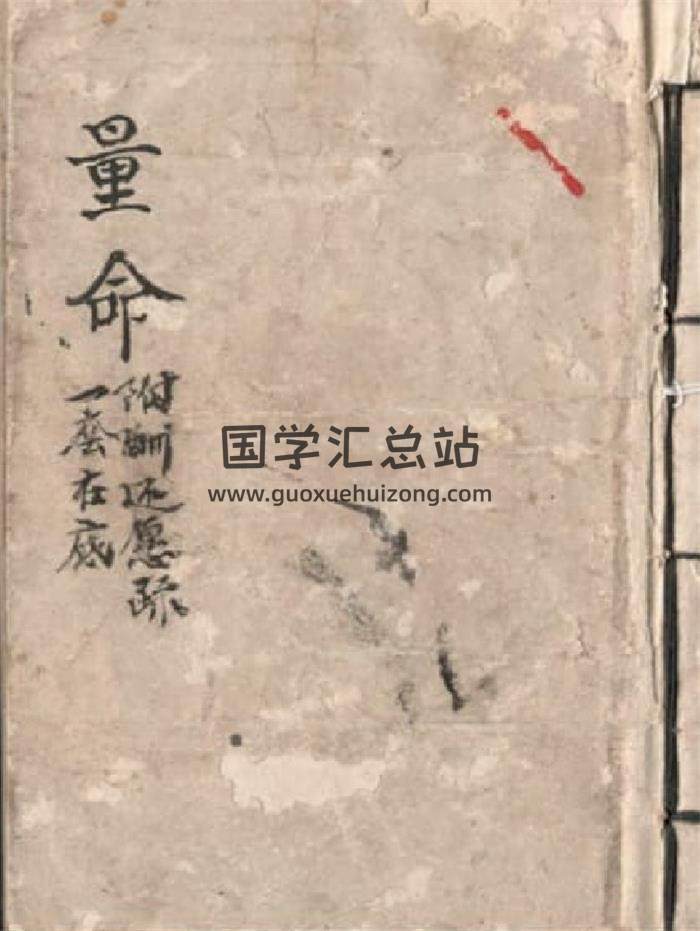 量命
附酬还愿疏
一套在底
国学汇总站
www.guoxuehuizong.com